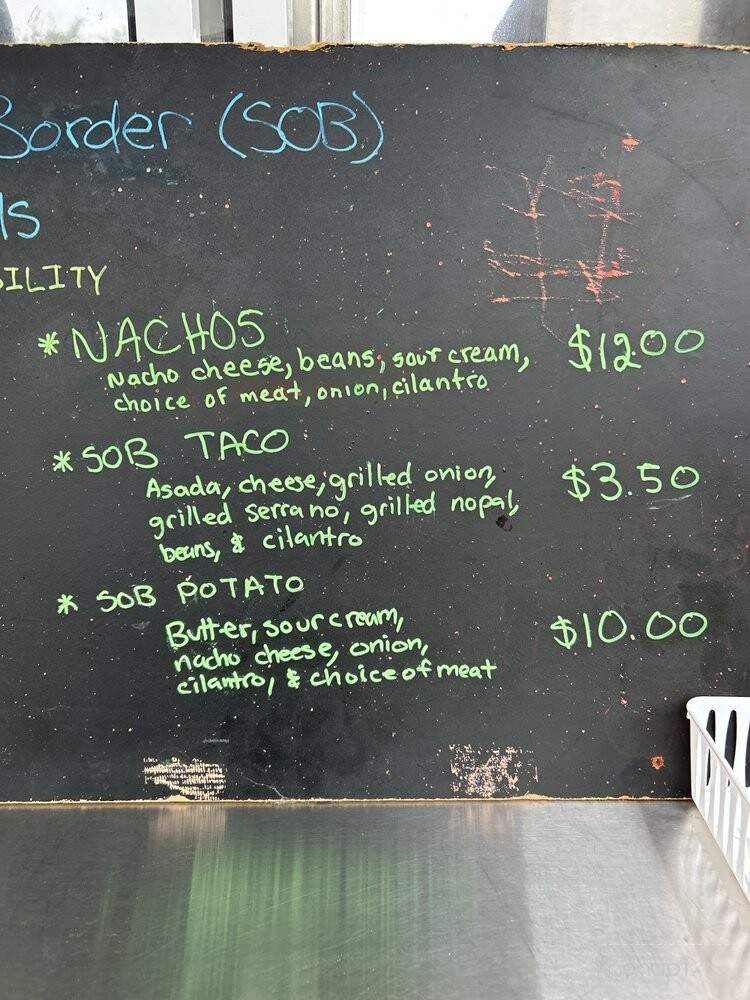 Border (SOB)
ls
ILITY
* NACHOS $12.00
Nacho cheese, beans, sour cream,
choice of meat, onion, cilantro
* SOB TACO
Asada, cheese, grilled onion, $3.50
grilled serrano, grilled nopal,
beans, & cilantro
* SOB POTATO
Butter, sour cream, $10.00
nacho cheese, onion,
cilantro, & choice of meat